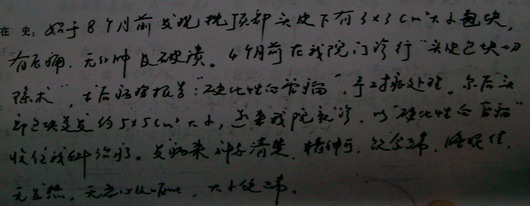 在史:始于8个月前发现枕顶部头皮下有3x3cm²大小包块,
有压痛,无红肿及破溃。4个月前在我院门诊行"头皮包块切
除术",术后病理报告:"硬化性血管瘤",予对症处理。尔后头
部包块复发约5x5cm²大小,近来我院就诊,以"硬化性血管瘤"
收住我科治疗。发病来神志清楚,精神可,饮食正常,睡眠佳,
无发热,无恶心,大小便正常。